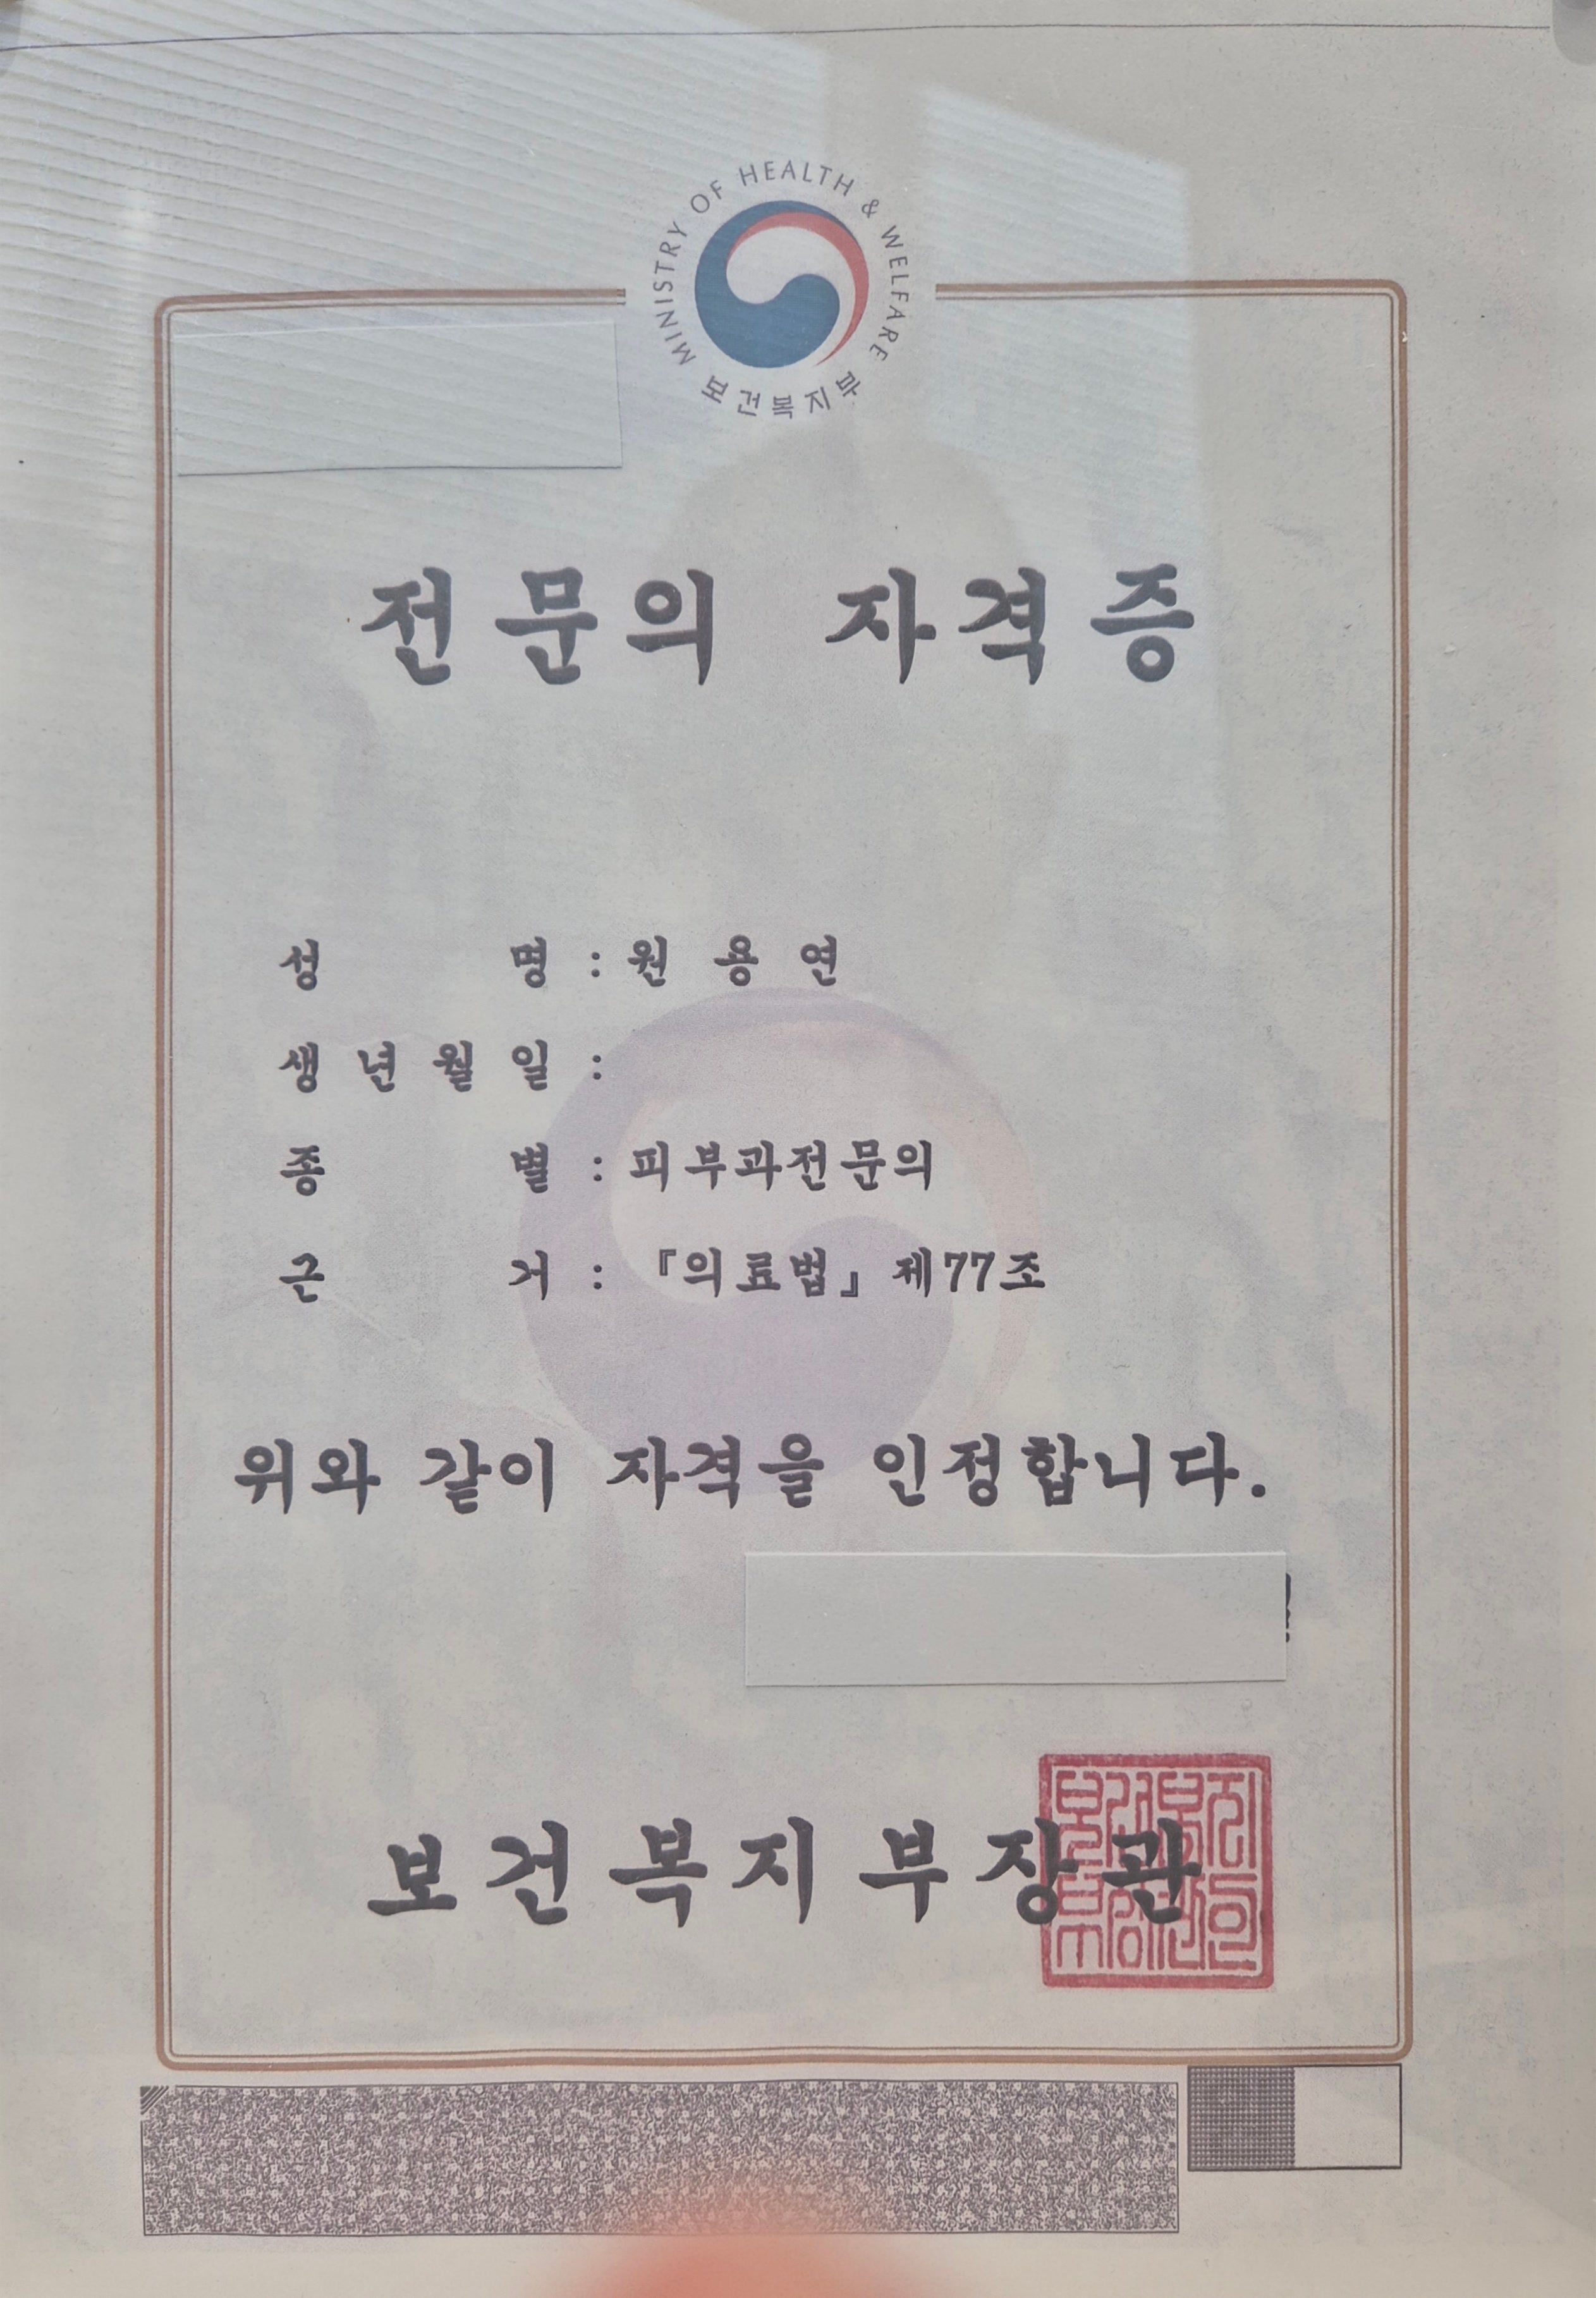 MINISTRY OF HEALTH & WELFARE
보건복지부
전문의 자격증
성 명 : 원 용 연
생 년 월 일 :
종 별 : 피부과전문의
근 거 : 『의료법』 제77조
위와 같이 자격을 인정합니다.
보건복지부장관